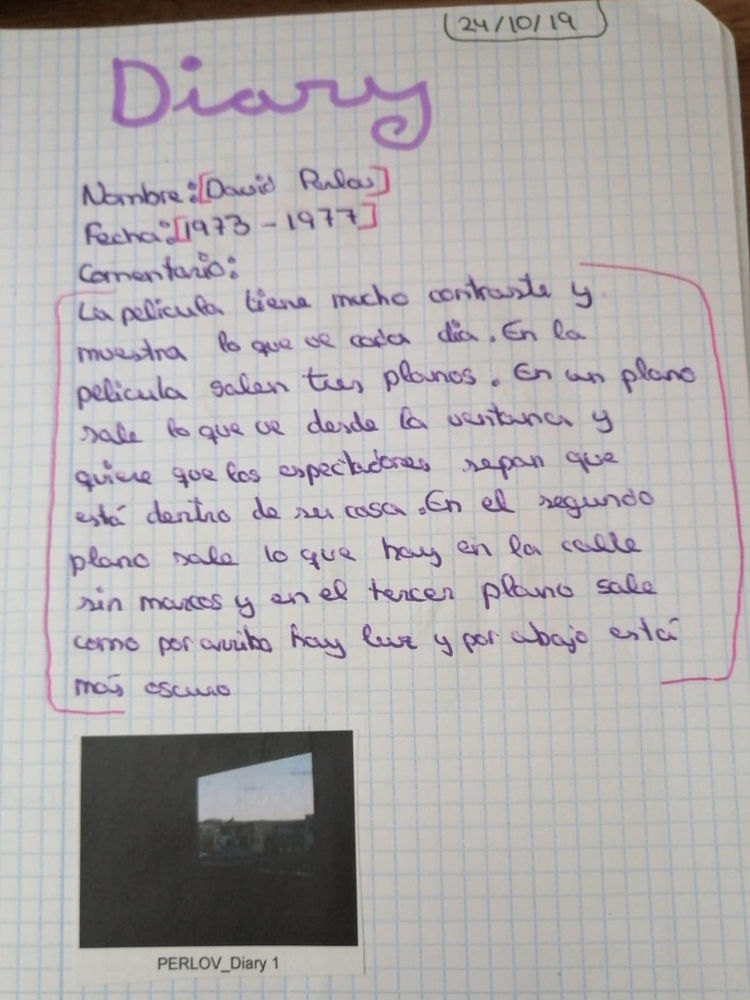 24/10/19
Diary
Nombre:[David Perlov]
Fecha:[1973-1977]
Comentario:
La película tiene mucho contraste y
muestra lo que ve cada día. En la
película salen tres planos. En un plano
sale lo que ve desde la ventana y
quiere que los espectadores sepan que
está dentro de su casa. En el segundo
plano sale lo que hay en la calle
sin marcos y en el tercer plano sale
como por arriba hay luz y por abajo está
más oscuro
PERLOV_Diary 1